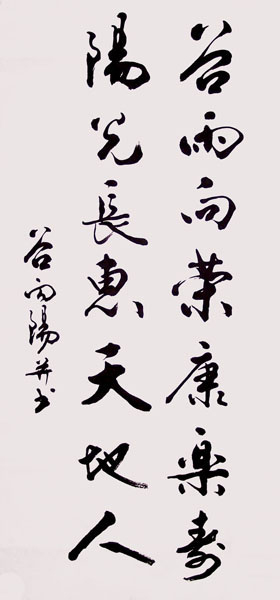 谷雨向荣康樂寿
陽光長惠天地人
谷向陽并书